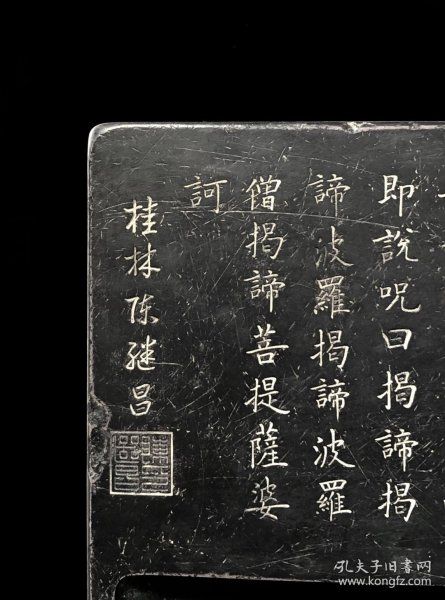 即說呪曰揭諦揭
諦波羅揭諦波羅
僧揭諦菩提薩婆
訶
桂林陈继昌
孔夫子旧书网
www.kongfz.com